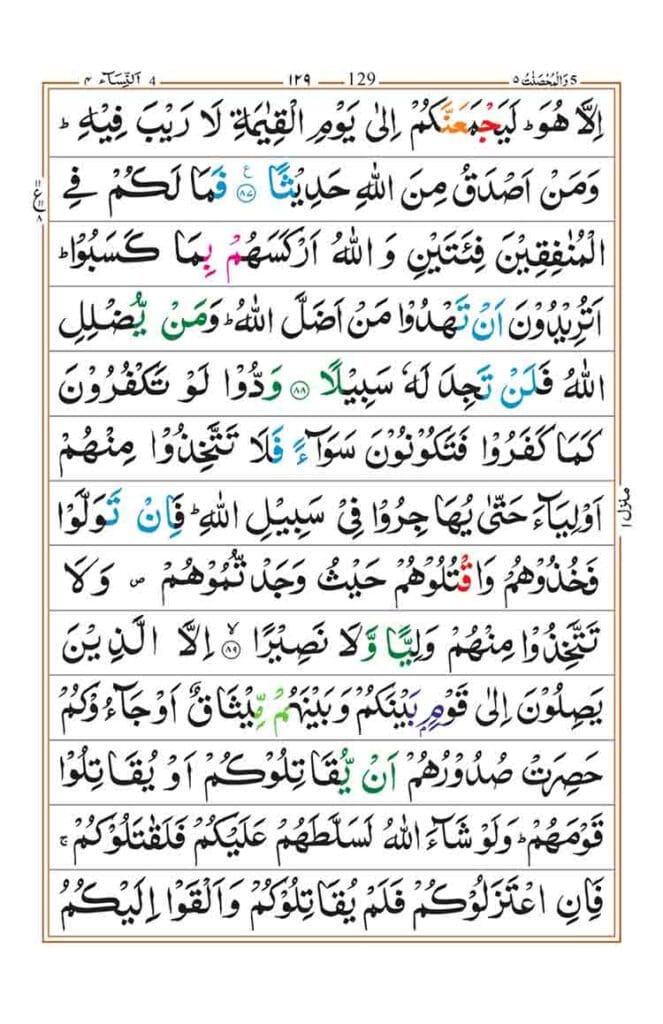 وَالْمُحْصَنٰتُ ۵ 5 129 ١٢٩ 4 اَلنِّسَآء ۴
اِلَّا هُوَؕ لَيَجْمَعَنَّكُمْ اِلٰى يَوْمِ الْقِيٰمَةِ لَا رَيْبَ فِيْهِؕ
وَمَنْ اَصْدَقُ مِنَ اللّٰهِ حَدِيْثًا ﴿۸۷﴾ ع فَمَا لَكُمْ فِى
الْمُنٰفِقِيْنَ فِئَتَيْنِ وَاللّٰهُ اَرْكَسَهُمْ بِمَا كَسَبُوْاؕ
اَتُرِيْدُوْنَ اَنْ تَهْدُوْا مَنْ اَضَلَّ اللّٰهُؕ وَمَنْ يُّضْلِلِ
اللّٰهُ فَلَنْ تَجِدَ لَهٗ سَبِيْلًا ﴿۸۸﴾ وَدُّوْا لَوْ تَكْفُرُوْنَ
كَمَا كَفَرُوْا فَتَكُوْنُوْنَ سَوَآءً فَلَا تَتَّخِذُوْا مِنْهُمْ
اَوْلِيَآءَ حَتّٰى يُهَاجِرُوْا فِىْ سَبِيْلِ اللّٰهِؕ فَاِنْ تَوَلَّوْا
فَخُذُوْهُمْ وَاقْتُلُوْهُمْ حَيْثُ وَجَدْتُّمُوْهُمْ ۖ وَلَا
تَتَّخِذُوْا مِنْهُمْ وَلِيًّا وَّلَا نَصِيْرًا ۙ﴿۸۹﴾ اِلَّا الَّذِيْنَ
يَصِلُوْنَ اِلٰى قَوْمٍۭ بَيْنَكُمْ وَبَيْنَهُمْ مِّيْثَاقٌ اَوْ جَآءُوْكُمْ
حَصِرَتْ صُدُوْرُهُمْ اَنْ يُّقَاتِلُوْكُمْ اَوْ يُقَاتِلُوْا
قَوْمَهُمْؕ وَلَوْ شَآءَ اللّٰهُ لَسَلَّطَهُمْ عَلَيْكُمْ فَلَقٰتَلُوْكُمْۚ
فَاِنِ اعْتَزَلُوْكُمْ فَلَمْ يُقَاتِلُوْكُمْ وَاَلْقَوْا اِلَيْكُمُ
منزل ١